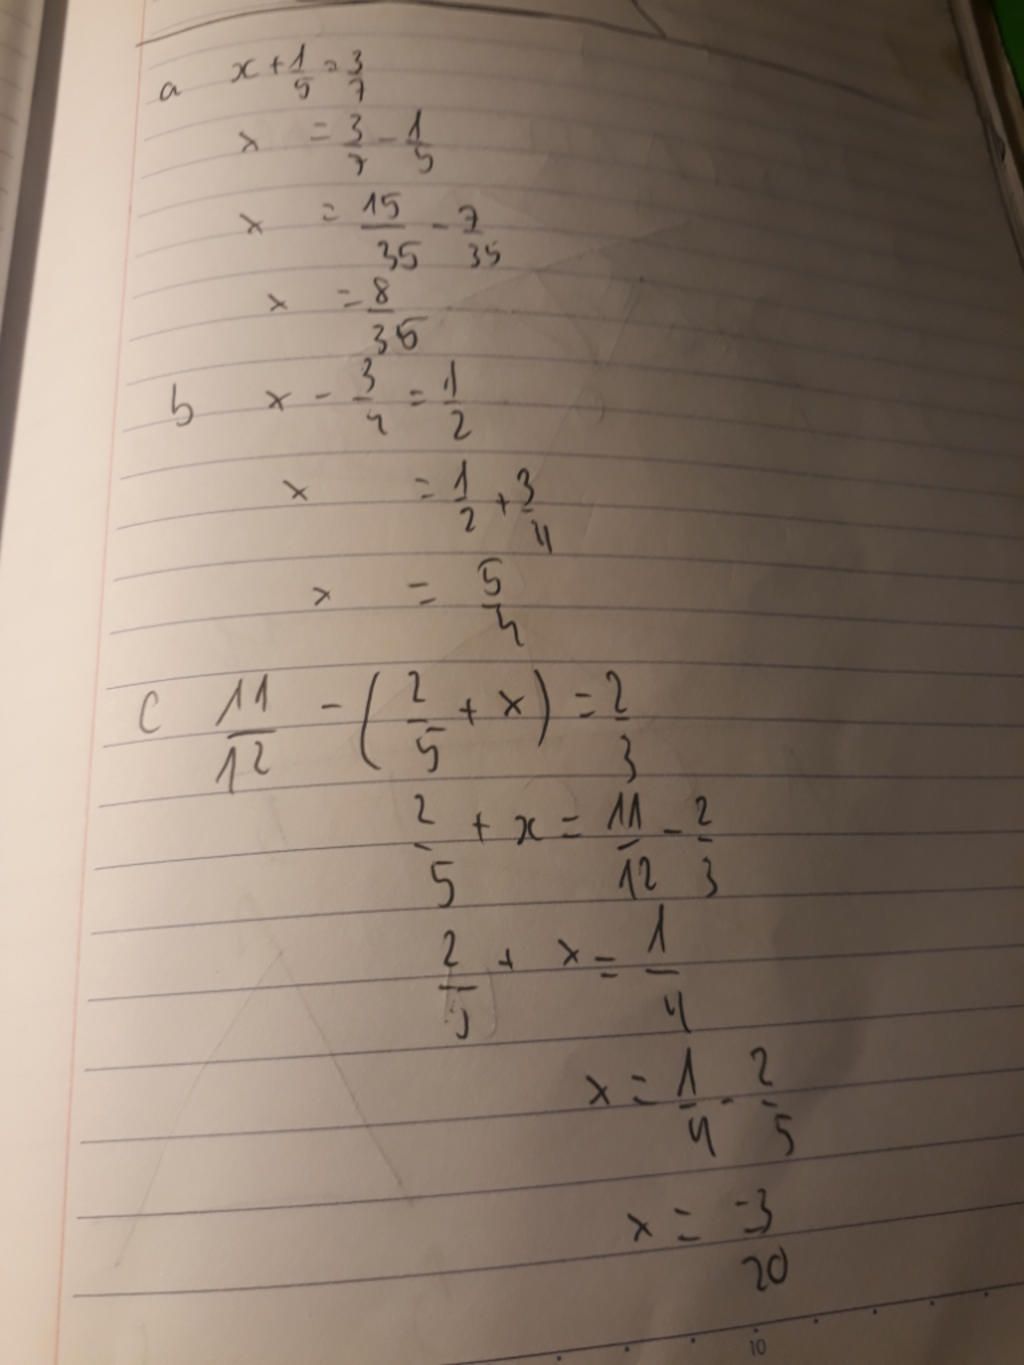 a x + 1/5 = 3/7
x = 3/7 - 1/5
x = 15/35 - 7/35
x = 8/35
b x - 3/4 = 1/2
x = 1/2 + 3/4
x = 5/4
c 11/12 - (2/5 + x) = 2/3
2/5 + x = 11/12 - 2/3
2/5 + x = 1/4
x = 1/4 - 2/5
x = -3/20
10